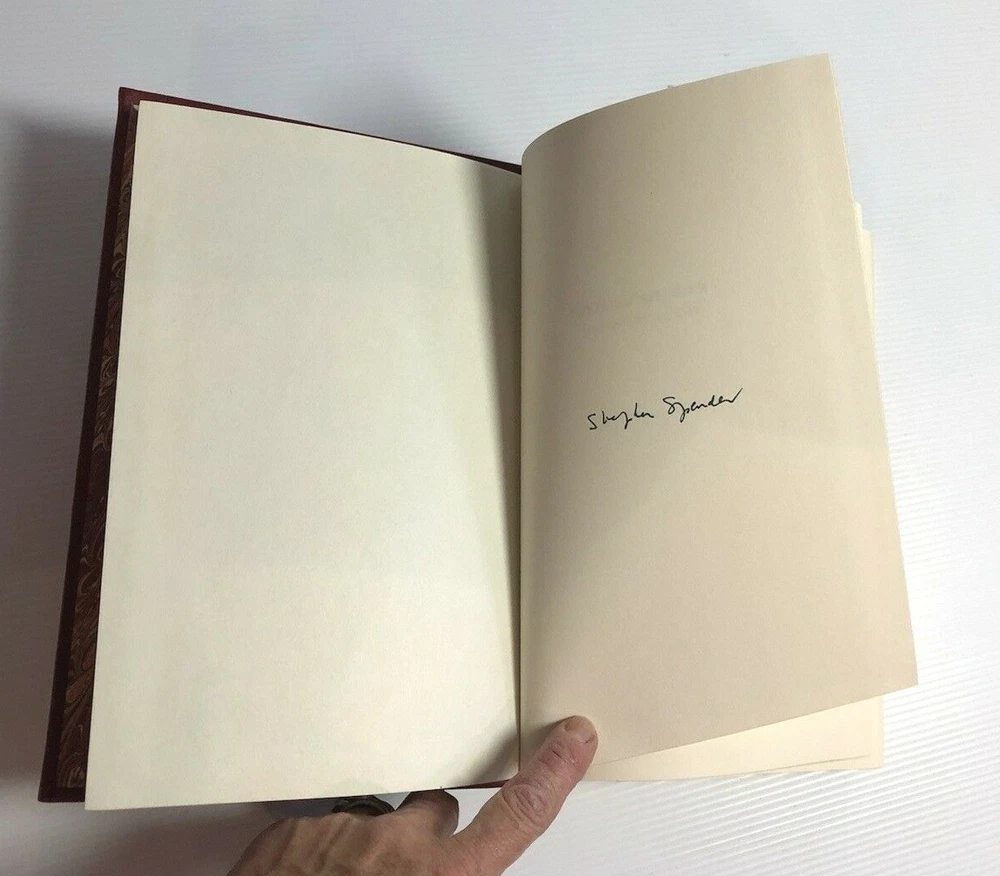 Stephen Spender